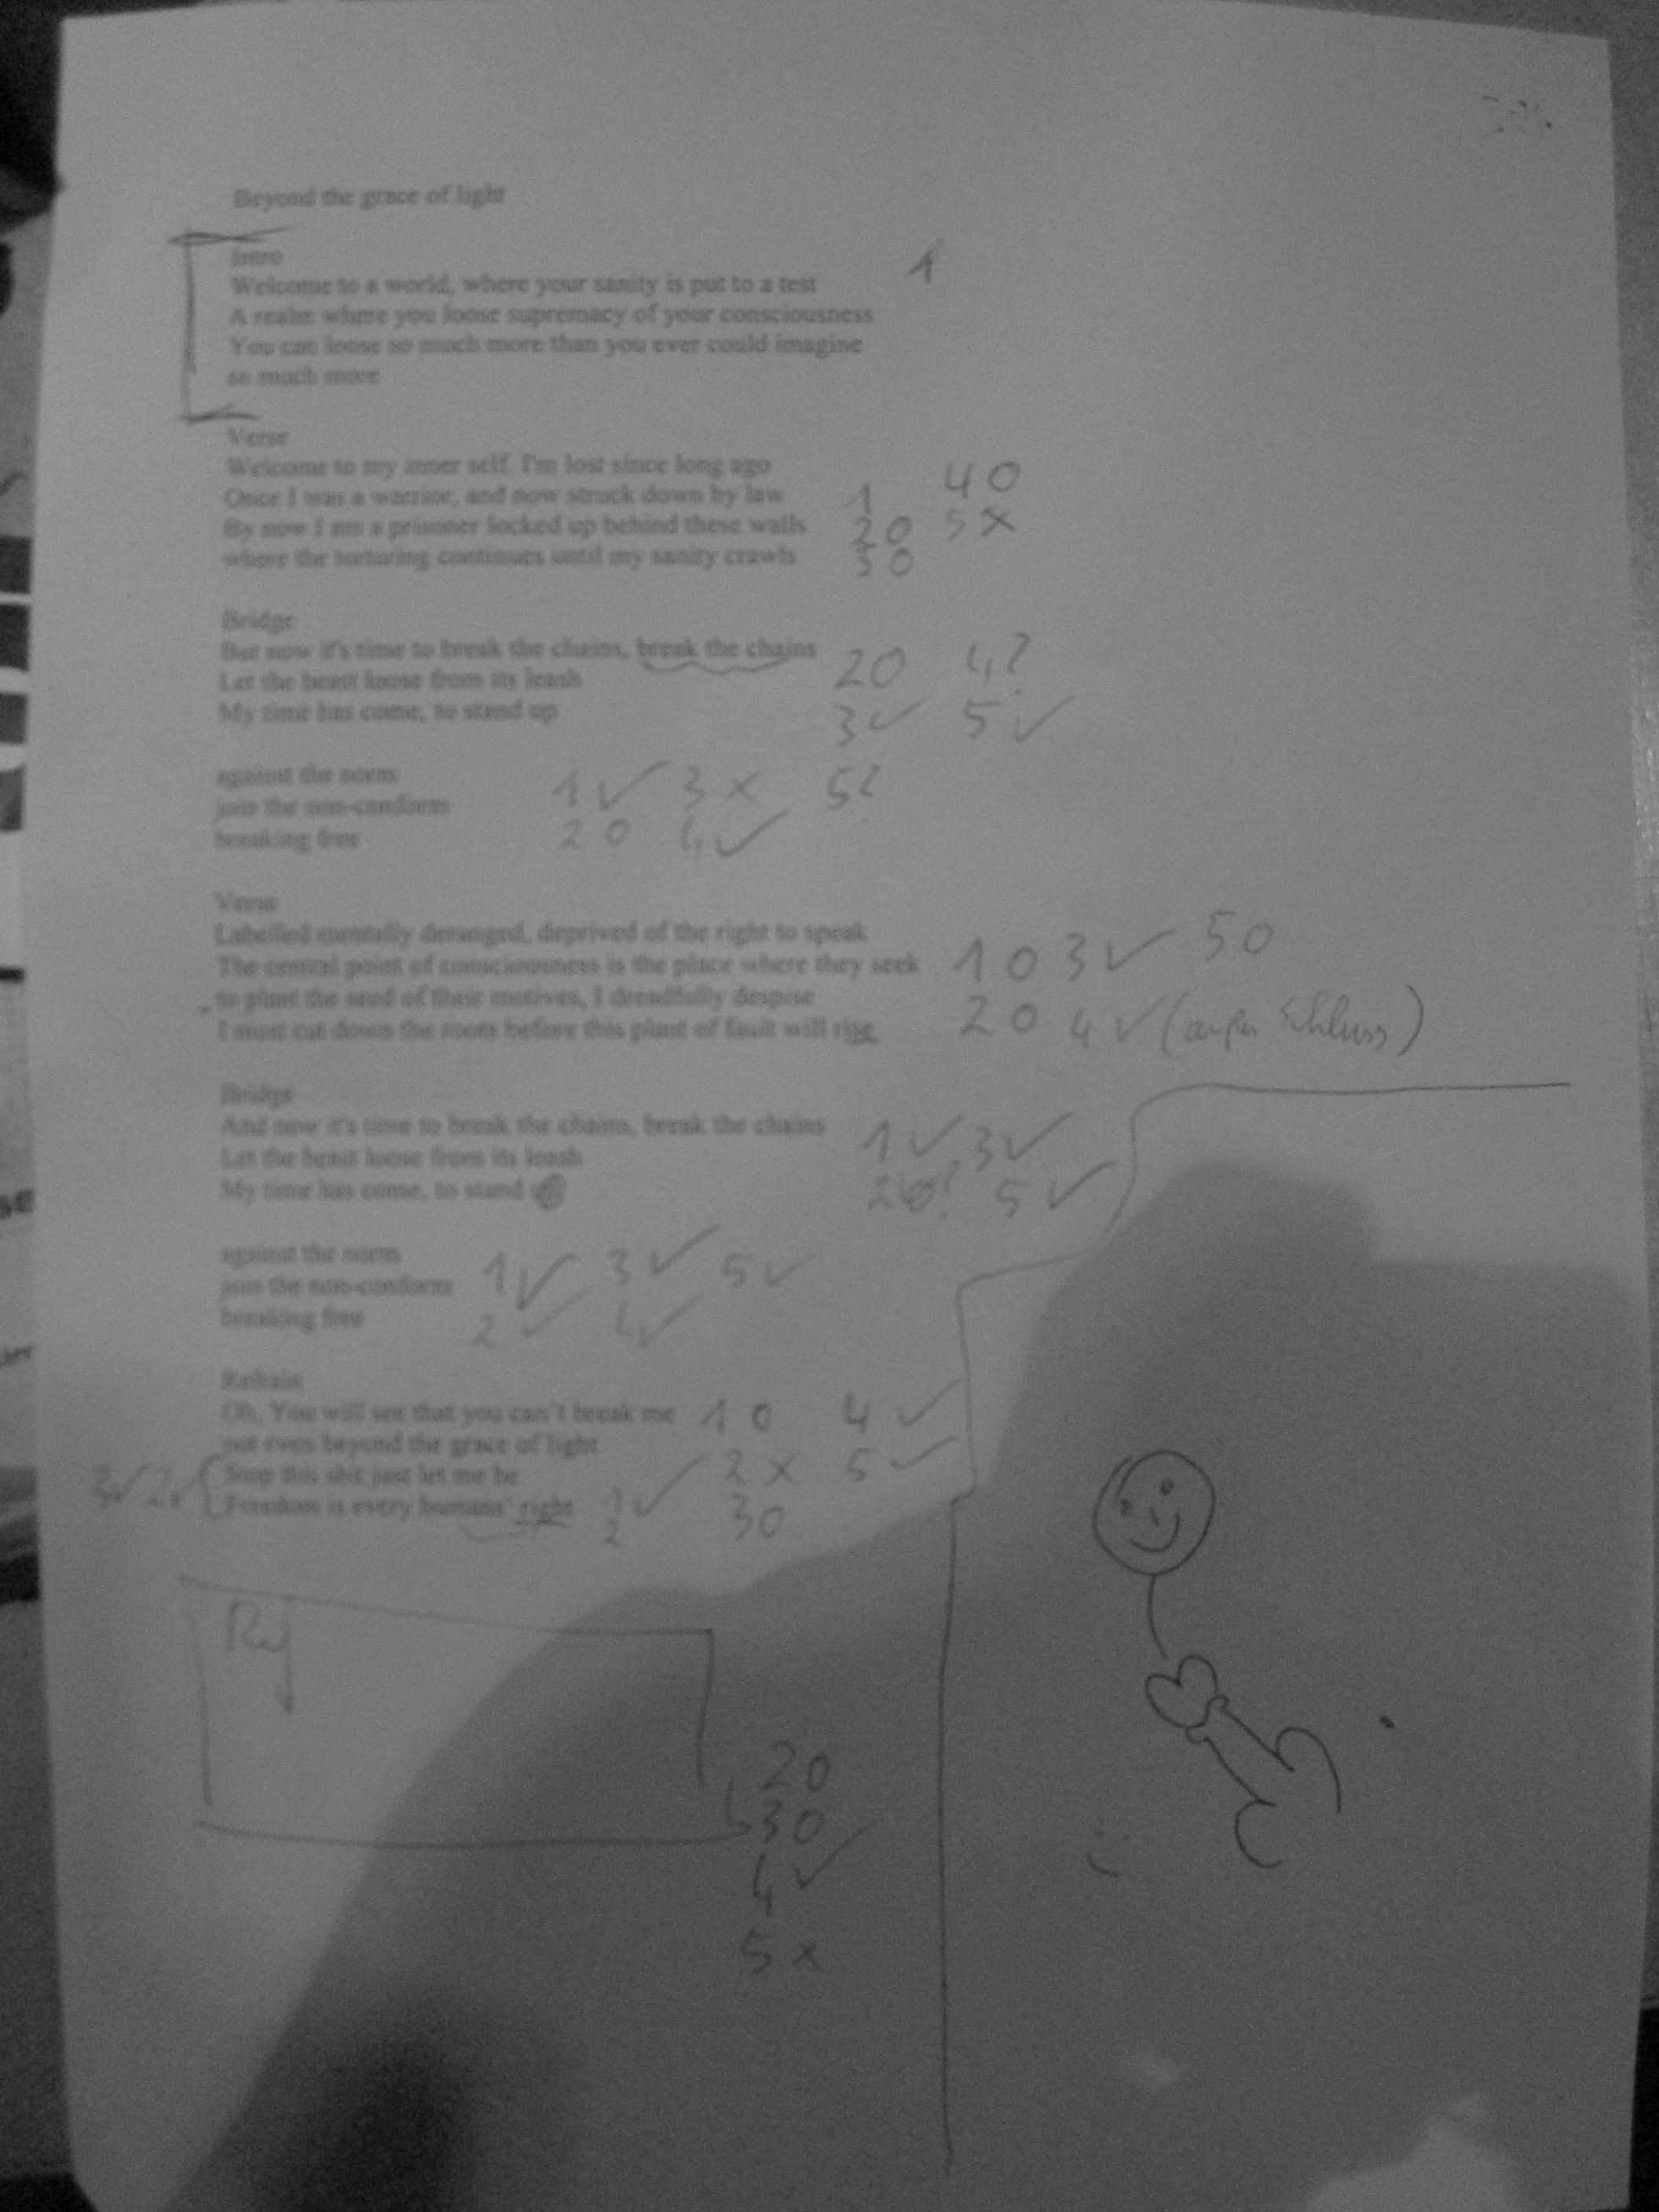 Beyond the grace of light
Intro
Welcome to a world, where your sanity is put to a test 1
A realm where you loose supremacy of your consciousness
You can loose so much more than you ever could imagine
so much more
Verse
Welcome to my inner self. I'm lost since long ago 4 0
Once I was a warrior, and now struck down by law 1
By now I am a prisoner locked up behind these walls 2 0 5 x
where the torturing continues until my sanity crawls 3 0
Bridge
But now it's time to break the chains, break the chains 2 0 4 ?
Let the beast loose from its leash
My time has come, to stand up 3 ✓ 5 ✓
against the norm 1 ✓ 3 x 5 ?
join the non-conform
breaking free 2 0 4 ✓
Verse
Labelled mentally deranged, deprived of the right to speak 5 0
The central point of consciousness is the place where they seek 1 0 3 ✓
to plant the seed of their motives, I dreadfully despise
I must cut down the roots before this plant of fault will rise 2 0 4 ✓ (außer Schluss)
Bridge
And now it's time to break the chains, break the chains 1 ✓ 3 ✓
Let the beast loose from its leash
My time has come, to stand 2 ? 5 ✓
against the norm 1 ✓ 3 ✓ 5 ✓
join the non-conform
breaking free 2 ✓ 4 ✓
Refrain
Oh, You will see that you can't break me 1 0 4 ✓
not even beyond the grace of light
3 ✓ 2 Stop this shit just let me be 2 x 5 ✓
Freedom is every humans' right 1 ✓ 3 0
2
2 0
3 0
4 ✓
5 x